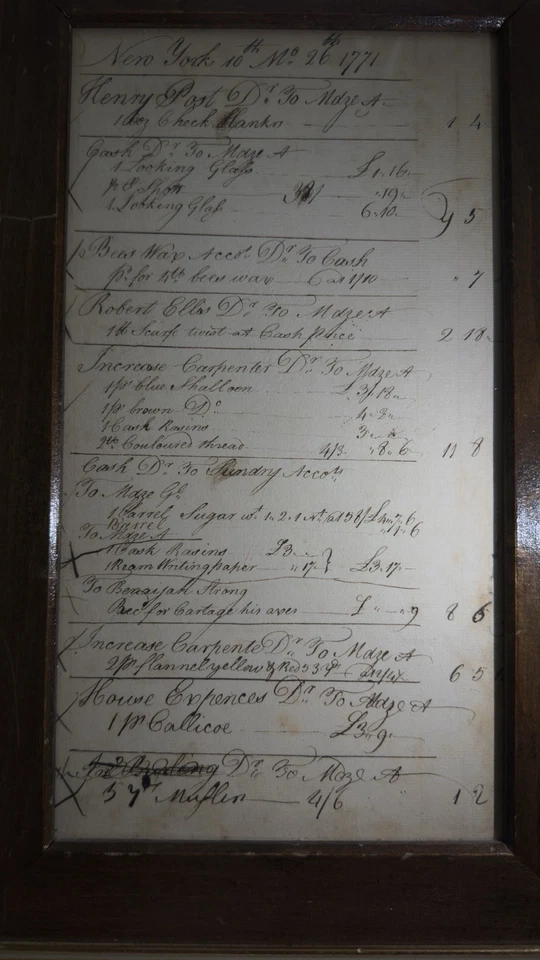 New York 10th Mo 26th 1771
Henry Post Dr To Mdze A
1 doz Check Hankrs 1 4
Cash Dr To Mdze A
1 Looking Glass £1.16
19
1 Looking Glass 6.10 9 5
Bees Wax Accot Dr To Cash
pd for bees wax 1/10 " 7
Robert Ellis Dr To Mdze A
1 lb Scarfe twist at Cash price 2 18
Increase Carpenter Dr To Mdze A
1 ps blue Shalloon £3.18
1 ps brown Do 4
1 Cask Rasins 3
Couloured thread 4/3 " 8 " 6 11 8
Cash Dr To Sundry Accots
To Mdze Gl
1 Barrel Sugar wt 1.2.1
Barrel 6
To Mdze A
1 Cask Rasins £3
1 Ream Writing paper " 17 £3.17
To Benajjah Strong
Recd for Cartage his axes £ " " 9 8 6
Increase Carpente Dr To Mdze A
2 ps flannel yellow & Red 6 5
House Expences Dr To Mdze A
1 ps Callicoe £3.9
Dr To Mdze A
5 yd Muslin 4/6 1 2